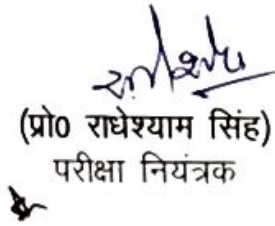 (प्रो0 राधेश्याम सिंह)
परीक्षा नियंत्रक